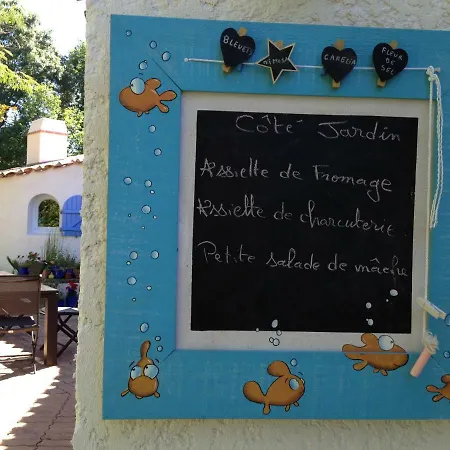 BLEUET
MIMOSA
CAMELIA
FLEUR
DE
SEL
Côté Jardin
Assiette de Fromage
Assiette de charcuterie.
Petite salade de mâche